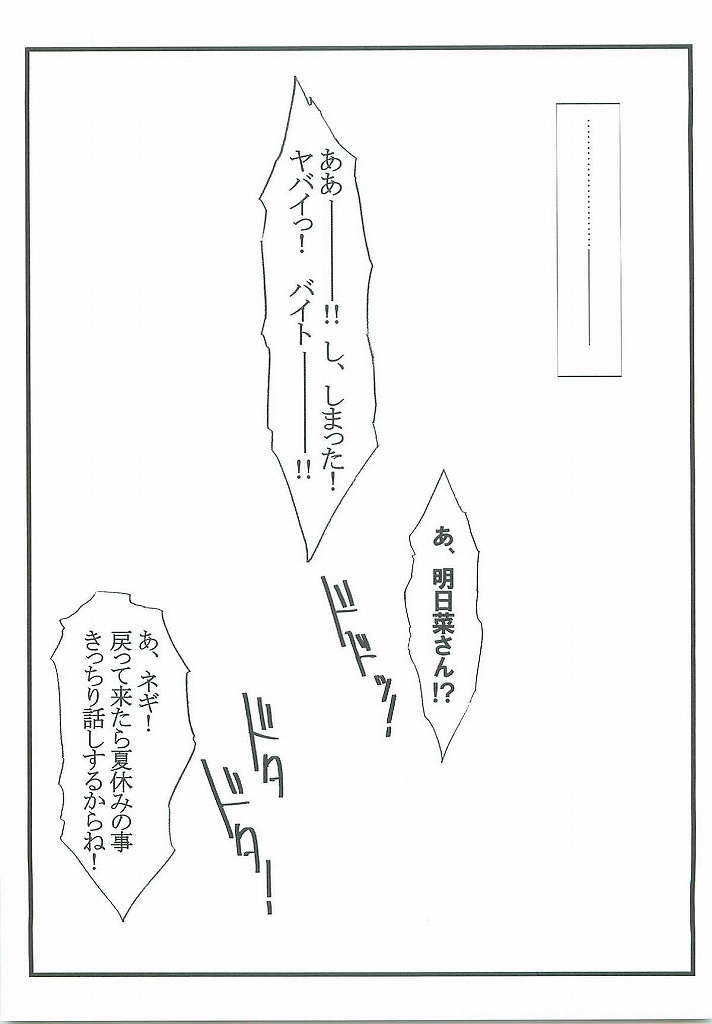 ………………―――
ああ―――!!し、しまった!
ヤバイっ! バイト―――!!
あ、明日菜さん!?
ドドッ!
ドタ
ドタ!
あ、ネギ!
戻って来たら夏休みの事
きっちり話しするからね!